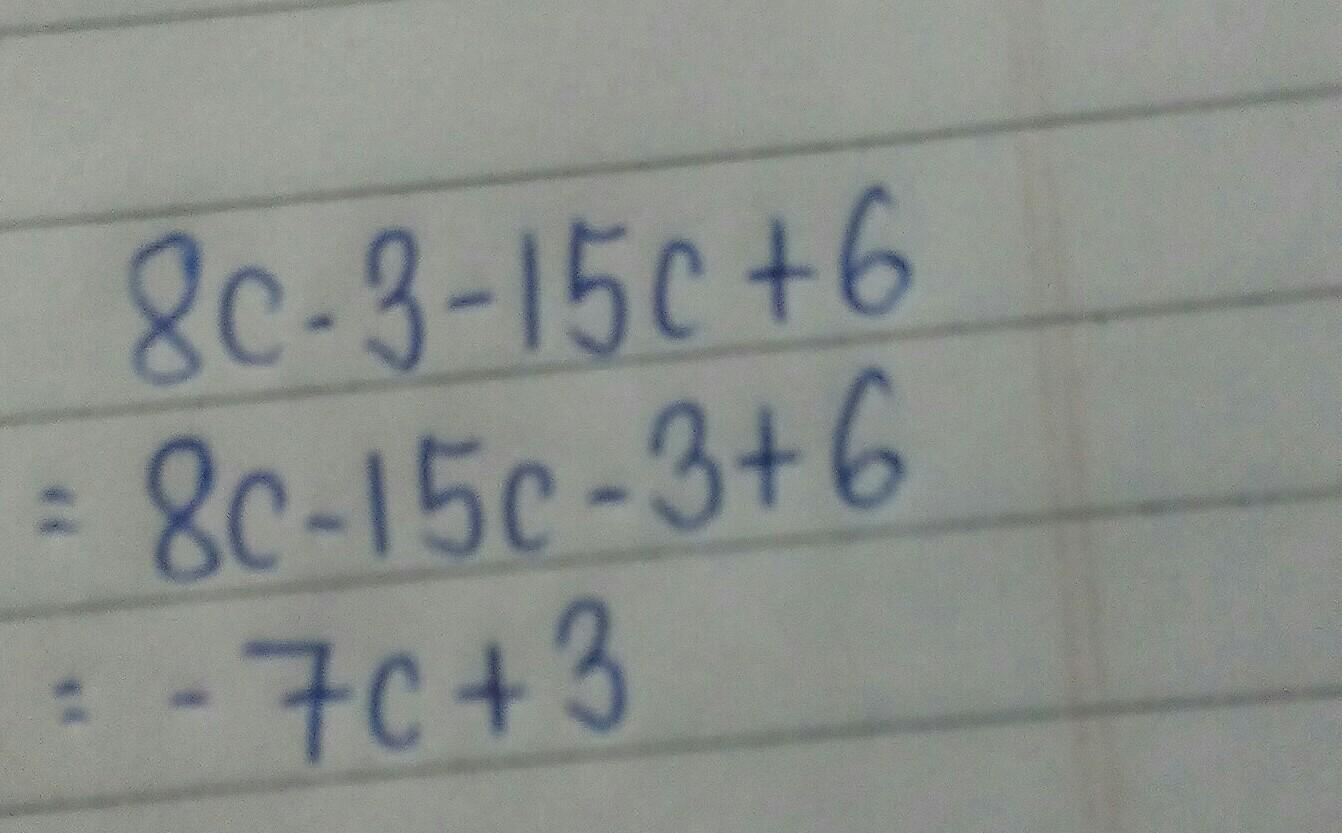 8c-3-15c+6
= 8c-15c-3+6
= -7c+3